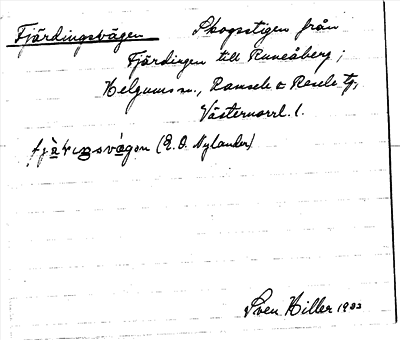 Fjärdingsvägen Skogsstigen från
Fjärdingen till Runeåberg;
Helgums sn., Ramsele & Resele tg,
Västernorrl. l.
(E.O. Nylander)
Sven Hiller 1933